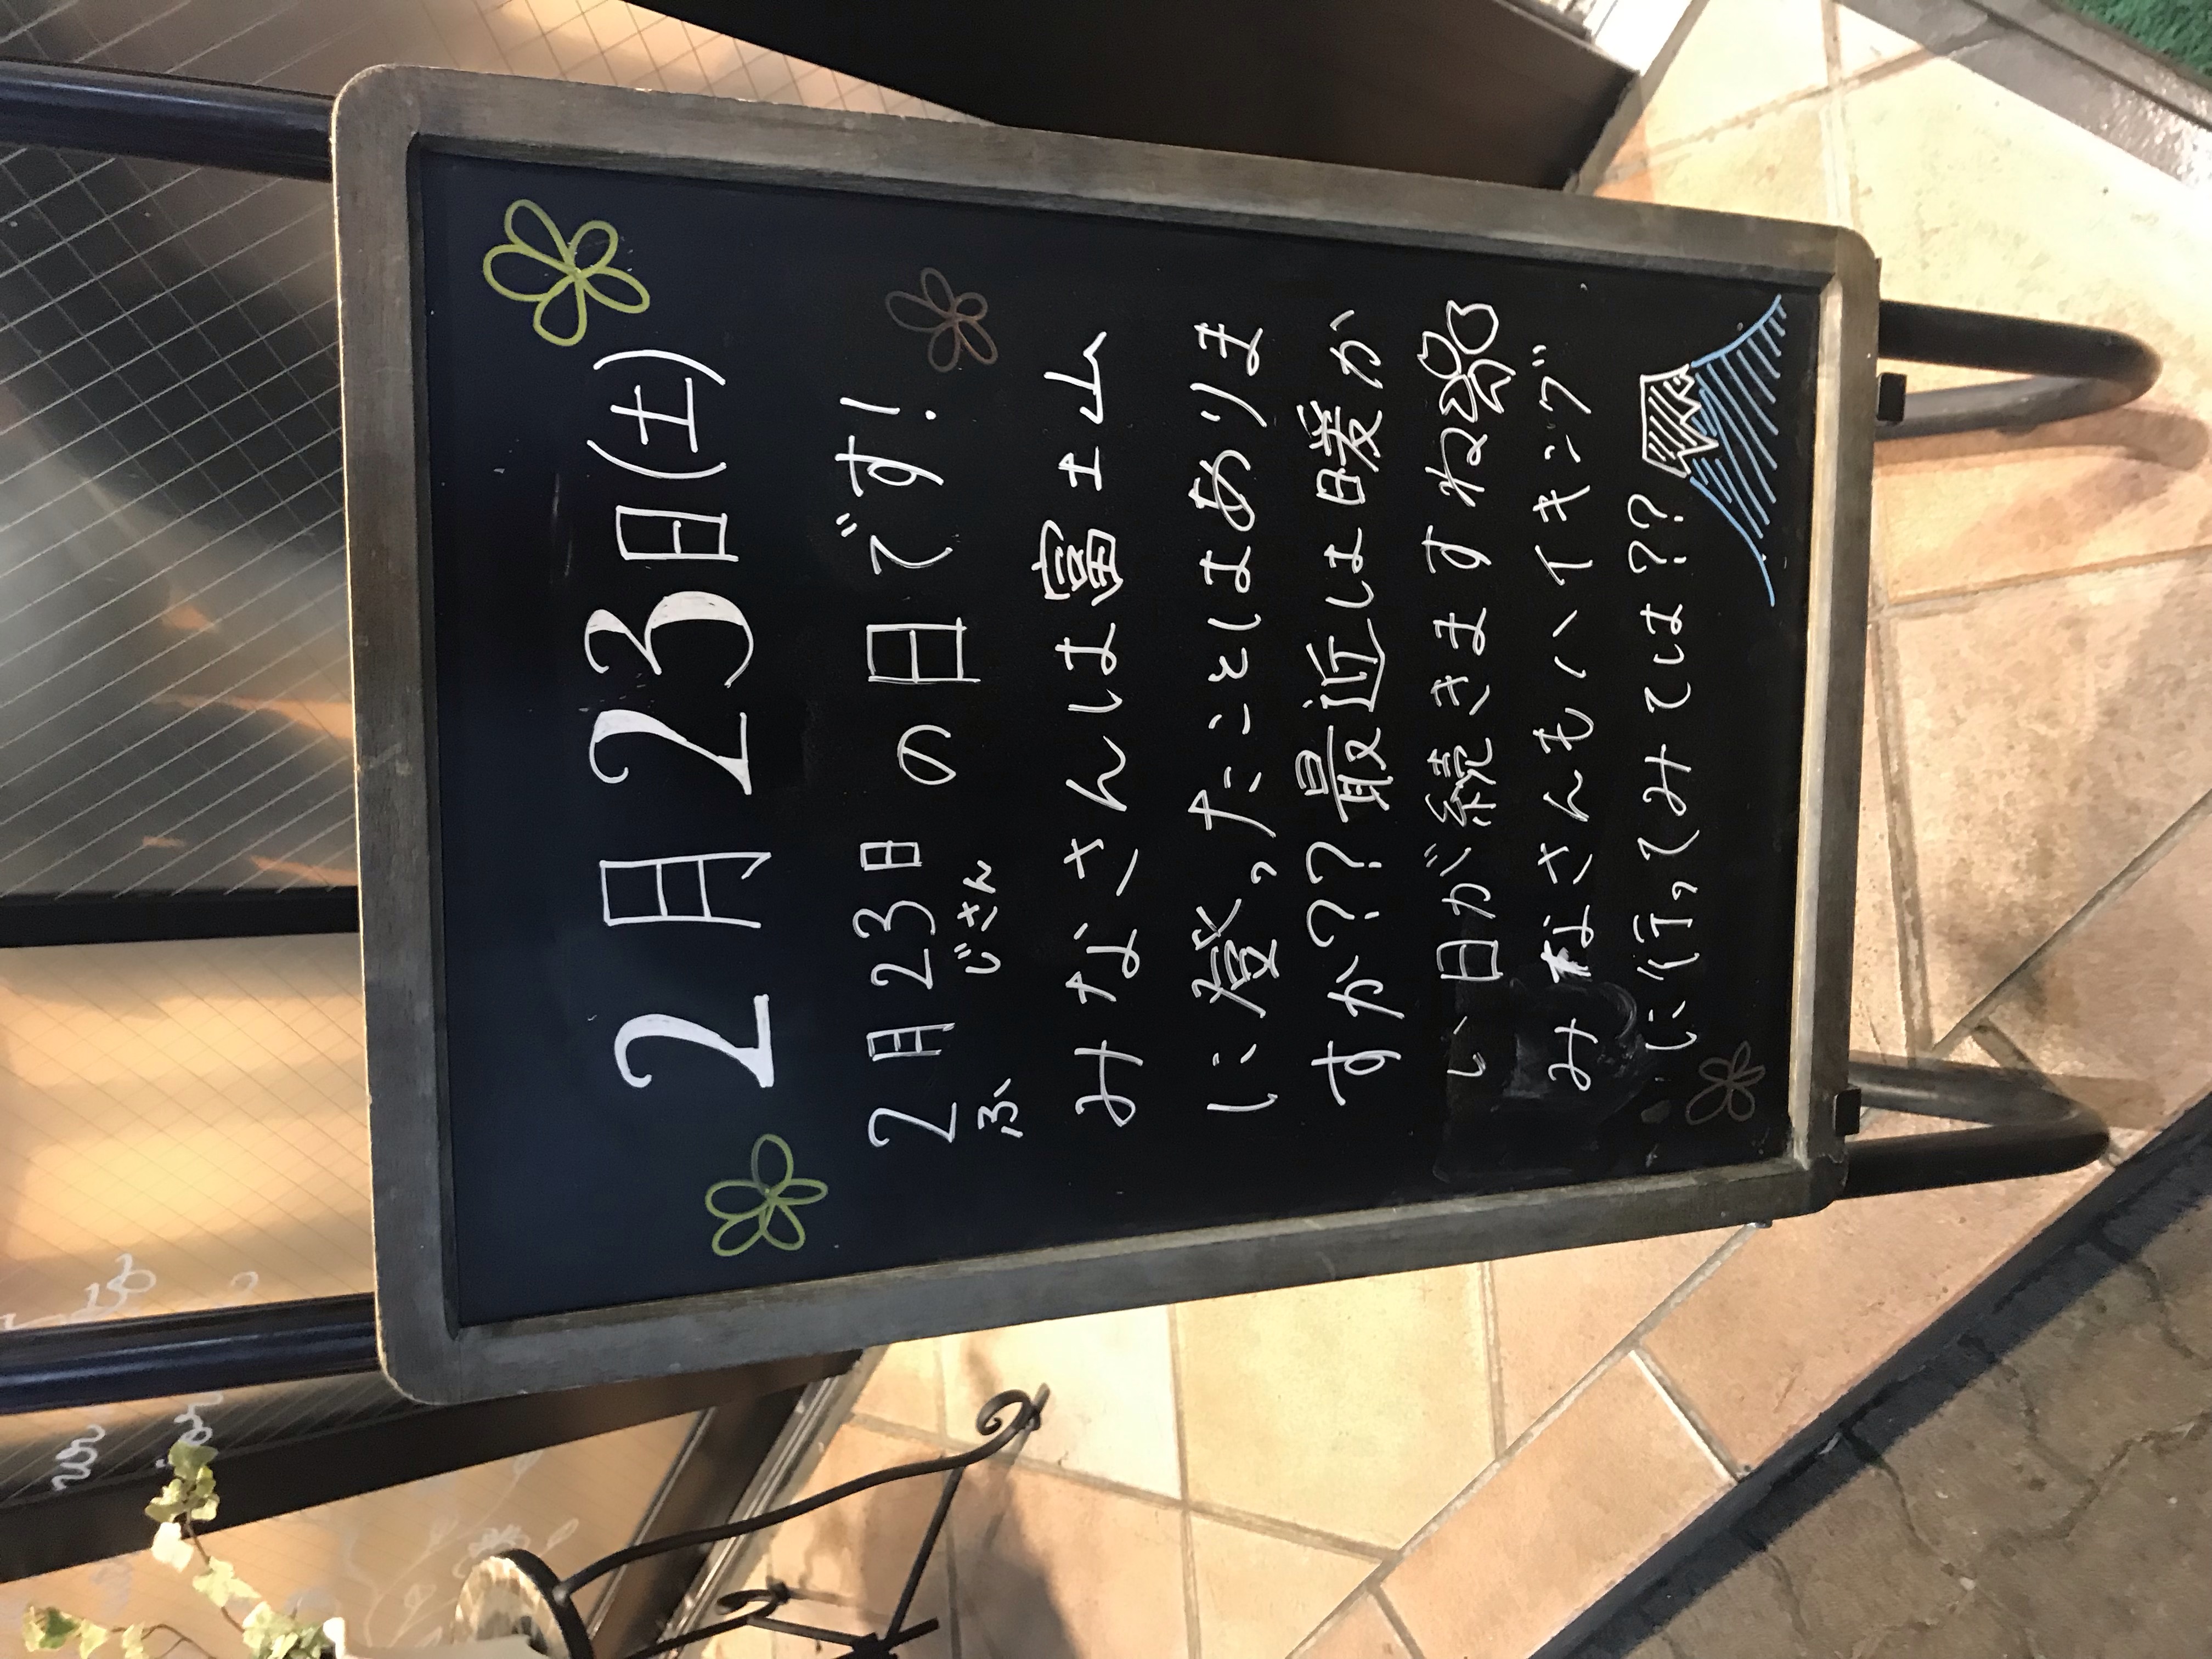 2月23日(土)
2月23日の日です!
ふ じさん
みなさんは富士山
に登ったことはありま
すか??最近は暖か
い日が続きますね
みなさんもハイキング
に行ってみては??